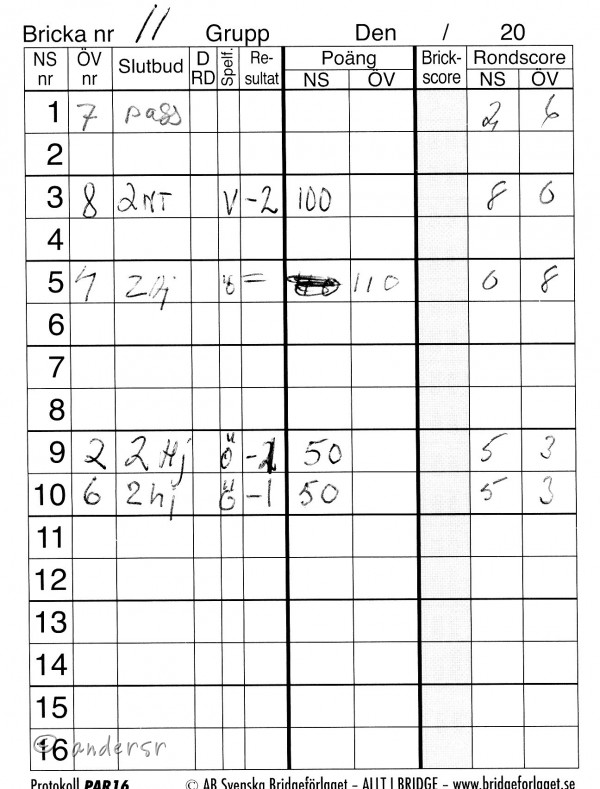 Bricka nr 11 Grupp Den / 20
NS nr ÖV nr Slutbud D RD Spelf. Re- sultat Poäng NS ÖV Brick- score Rondscore NS ÖV
1 7 pass 2 6
2
3 8 2NT V -2 100 8 0
4
5 4 2Hj Ö = 110 0 8
6
7
8
9 2 2Hj Ö -1 50 5 3
10 6 2hj Ö -1 50 5 3
11
12
13
14
15
16 © andersr
Protokoll PAR16 © AB Svenska Bridgeförlaget – ALLT I BRIDGE – www.bridgeforlaget.se